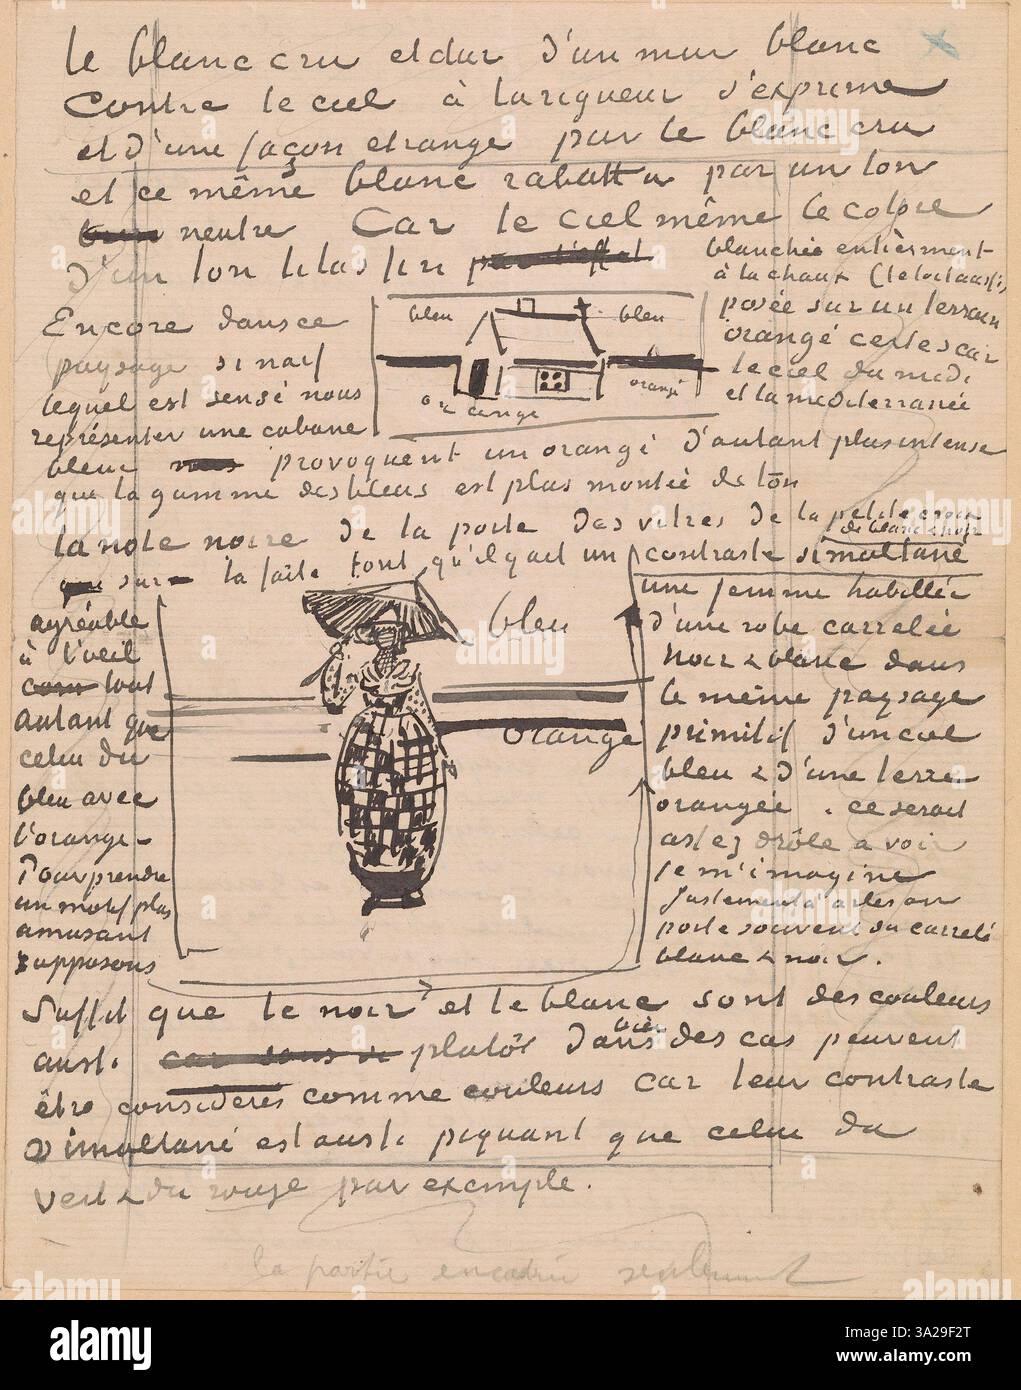 le blanc cru et dur d'un mur blanc
Contre le ciel à la rigueur s'exprime
et d'une façon etrange par le blanc cru
et ce même blanc rabattu par un ton
neutre Car le ciel même le colore
d'un ton lilas fin
blanchie entièrement
à la chaux (le toit aussi)
Encore dans ce
paysage si naif
lequel est sensé nous
représenter une cabane
bleu
bleu
orange
orangé
posée sur un terrain
orangé certes car
le ciel du midi
et la mediterranée
bleue provoquent un orangé d'autant plus intense
que la gamme des bleus est plus montée de ton
la note noire de la porte des vitres de la petite croix
sur la faîte font qu'il y ait un contraste simultané
de blanc & noir
agréable
à l'oeil
tout
autant que
celui du
bleu avec
l'orangé -
Pour prendre
un motif plus
amusant
supposons
bleu
orangé
une femme habillée
d'une robe carrelée
noir & blanc dans
le même paysage
primitif d'un ciel
bleu & d'une terre
orangée. ce serait
assez drôle a voir
je m'imagine
justement à arles on
porte souvent du carrelé
blanc & noir.
Suffit que le noir et le blanc sont des couleurs
aussi plutôt dans bien des cas peuvent
être considérés comme couleurs car leur contraste
simultané est aussi piquant que celui du
vert & du rouge par exemple.
la partie encadrée seulement
alamy
Image ID: 3A29F2T
www.alamy.com